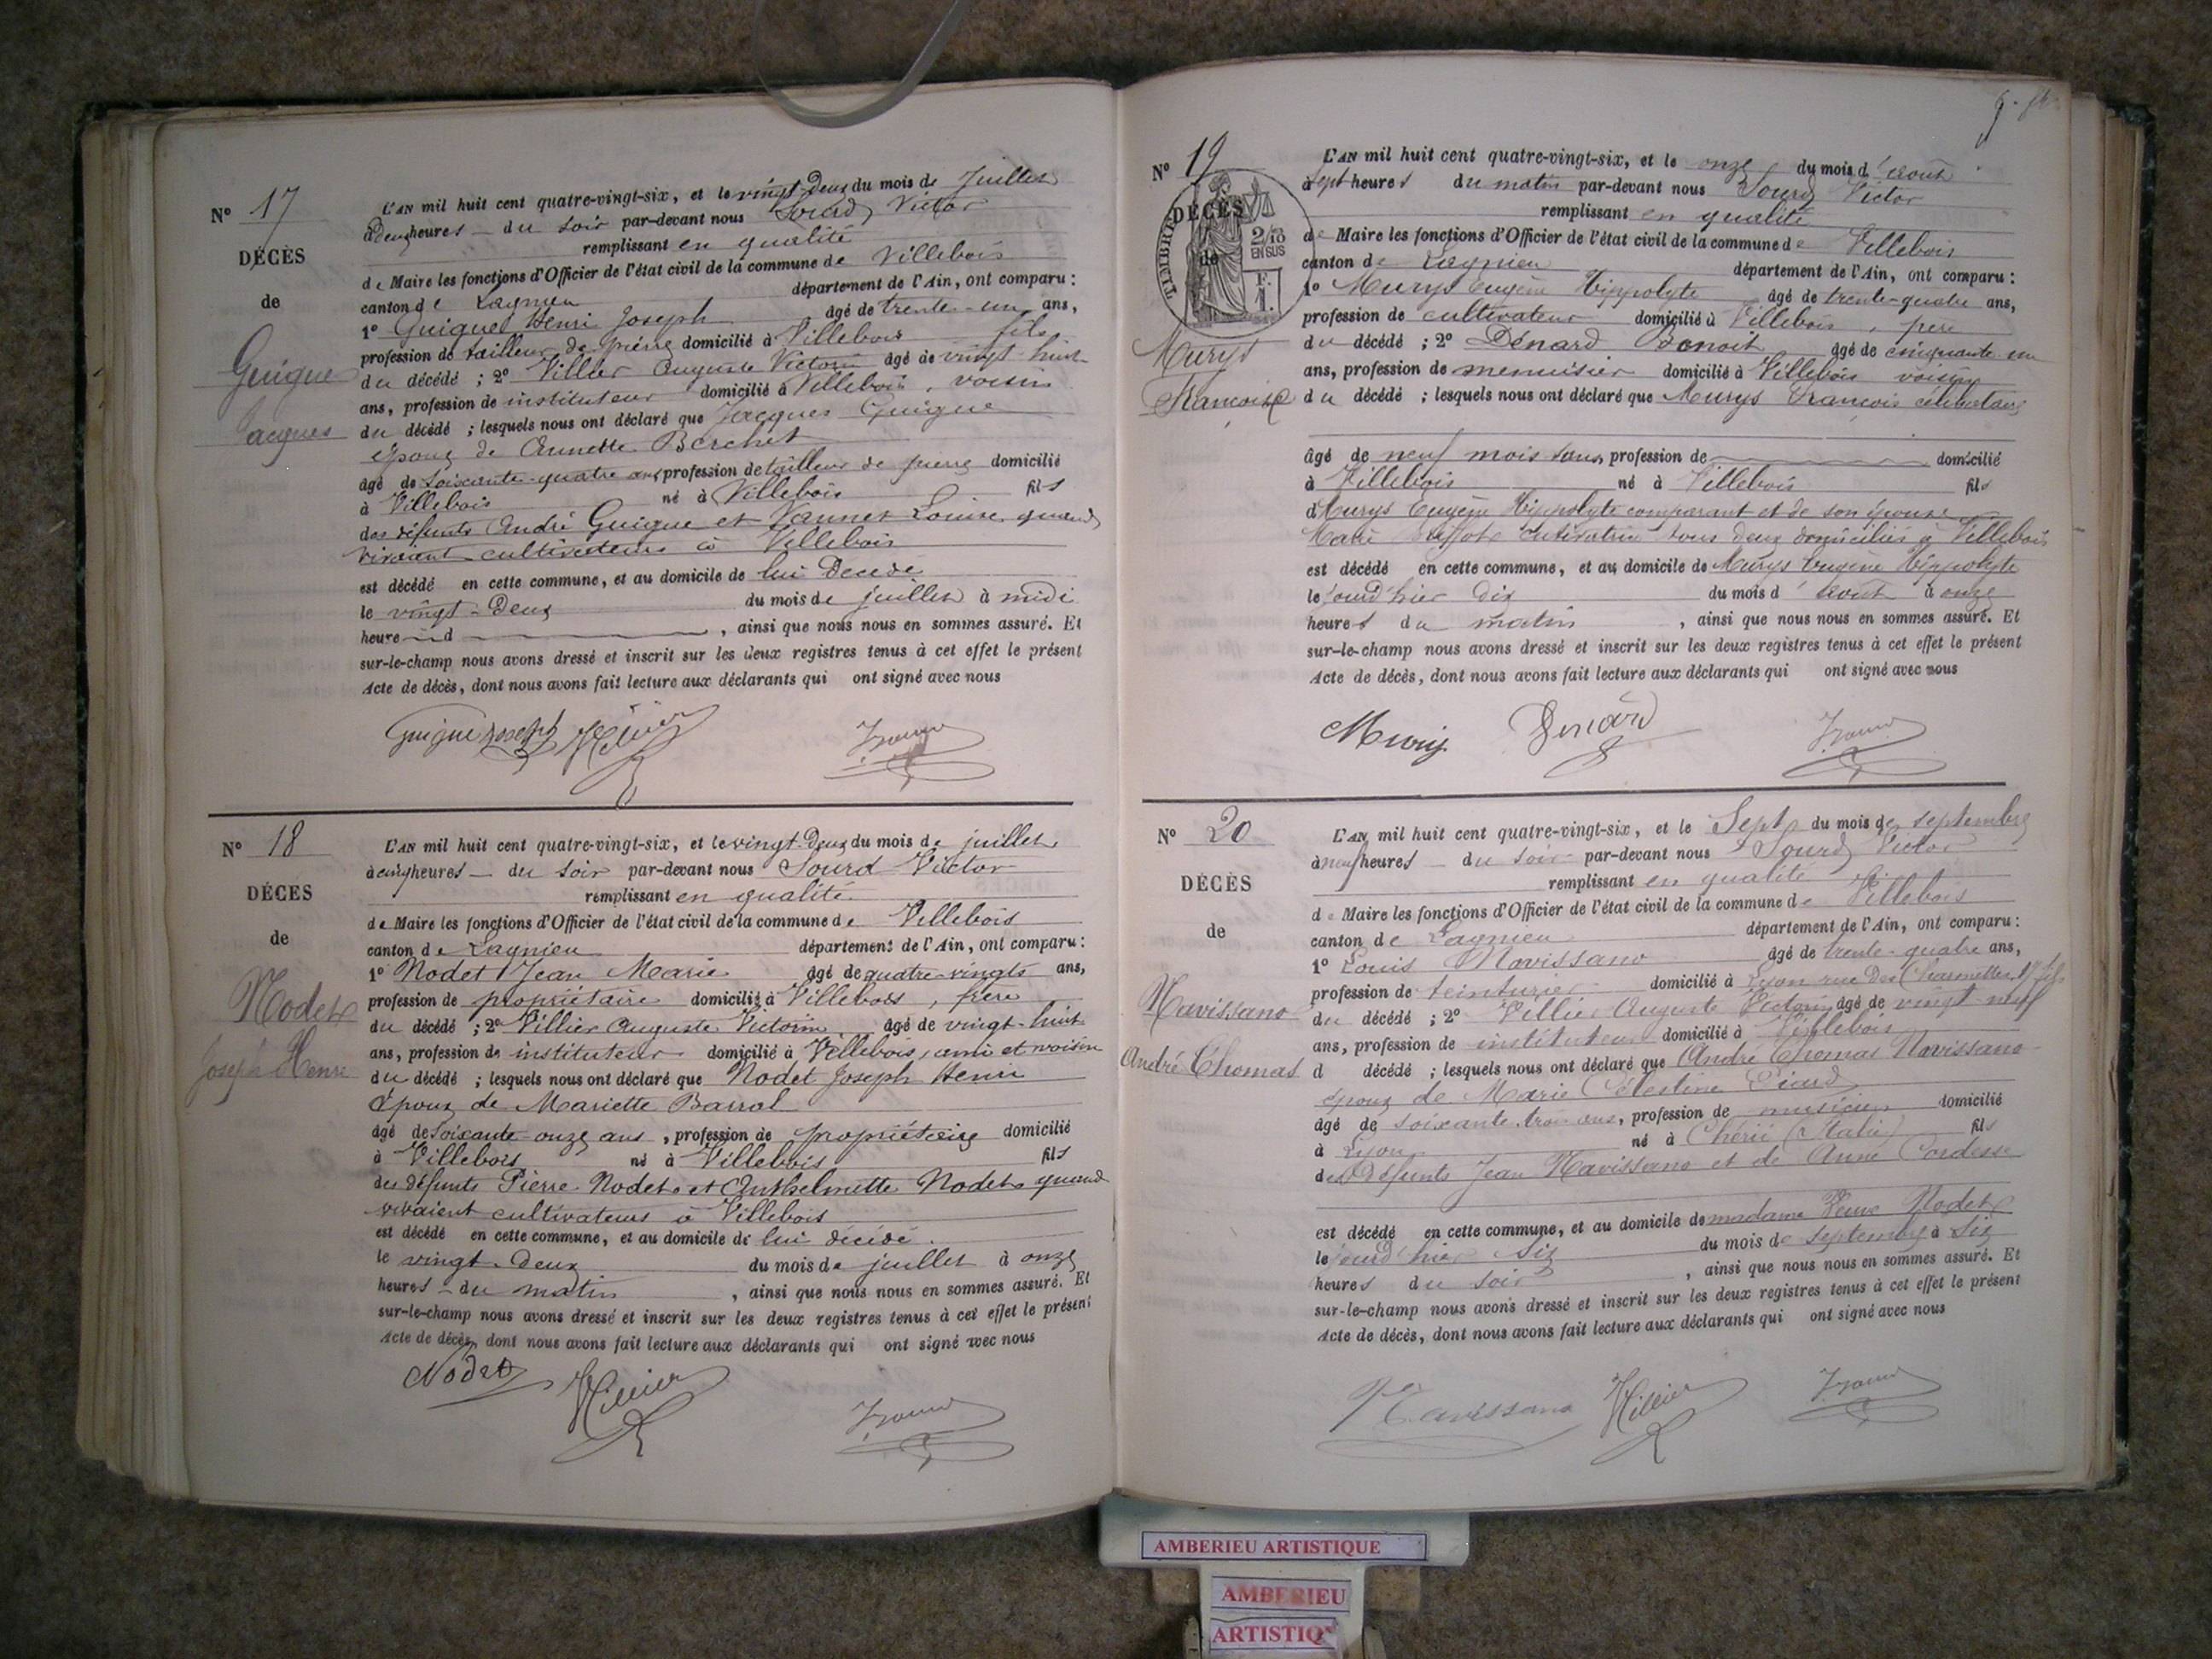 N° 17
DÉCÈS
de
Guigue
Jacques
L'AN mil huit cent quatre-vingt-six, et le vingt-deux du mois de Juillet
à deux heures du soir par-devant nous Sourd Victor
remplissant en qualité
de Maire les fonctions d'Officier de l'état civil de la commune de Villebois
canton de Lagnieu département de l'Ain, ont comparu :
1° Guigue Henri Joseph âgé de trente-un ans,
profession de tailleur de pierre domicilié à Villebois fils
du décédé ; 2° Villier Auguste Victorin âgé de vingt-huit
ans, profession de instituteur domicilié à Villebois, voisin
du décédé ; lesquels nous ont déclaré que Jacques Guigue
époux de Annette Berchet
âgé de soixante-quatre ans, profession de tailleur de pierre domicilié
à Villebois né à Villebois fils
des défunts André Guigue et Vannet Louise quand
vivaient cultivateurs à Villebois
est décédé en cette commune, et au domicile de lui décédé
le vingt-deux du mois de juillet à midi
heure d , ainsi que nous nous en sommes assuré. Et
sur-le-champ nous avons dressé et inscrit sur les deux registres tenus à cet effet le présent
Acte de décès, dont nous avons fait lecture aux déclarants qui ont signé avec nous
Guigue Joseph Villier
N° 18
DÉCÈS
de
Nodet
Joseph Henri
L'AN mil huit cent quatre-vingt-six, et le vingt-deux du mois de juillet
à cinq heures du soir par-devant nous Sourd Victor
remplissant en qualité
de Maire les fonctions d'Officier de l'état civil de la commune de Villebois
canton de Lagnieu département de l'Ain, ont comparu :
1° Nodet Jean Marie âgé de quatre-vingts ans,
profession de propriétaire domicilié à Villebois, frère
du décédé ; 2° Villier Auguste Victorin âgé de vingt-huit
ans, profession de instituteur domicilié à Villebois, ami et voisin
du décédé ; lesquels nous ont déclaré que Nodet Joseph Henri
époux de Mariette Barral
âgé de soixante-onze ans, profession de propriétaire domicilié
à Villebois né à Villebois fils
des défunts Pierre Nodet et Anthelmette Nodet quand
vivaient cultivateurs à Villebois
est décédé en cette commune, et au domicile de lui décédé
le vingt-deux du mois de juillet à onze
heures du matin , ainsi que nous nous en sommes assuré. Et
sur-le-champ nous avons dressé et inscrit sur les deux registres tenus à cet effet le présent
Acte de décès, dont nous avons fait lecture aux déclarants qui ont signé avec nous
Nodet Villier
N° 19
DÉCÈS
de
TIMBRE
2/10
EN SUS
F.
1.
Murys
François
L'AN mil huit cent quatre-vingt-six, et le onze du mois d'août
à sept heures du matin par-devant nous Sourd Victor
remplissant en qualité
de Maire les fonctions d'Officier de l'état civil de la commune de Villebois
canton de Lagnieu département de l'Ain, ont comparu :
1° Murys Eugène Hippolyte âgé de trente-quatre ans,
profession de cultivateur domicilié à Villebois, père
du décédé ; 2° Dénard Benoit âgé de cinquante un
ans, profession de menuisier domicilié à Villebois voisin
du décédé ; lesquels nous ont déclaré que Murys François célibataire
âgé de neuf mois sans, profession de domicilié
à Villebois né à Villebois fils
d Murys Eugène Hippolyte comparant et de son épouse
Marie cultivatrice tous deux domiciliés à Villebois
est décédé en cette commune, et au domicile de Murys Eugène Hippolyte
le jourd'hier dix du mois d'août à onze
heures du matin , ainsi que nous nous en sommes assuré. Et
sur-le-champ nous avons dressé et inscrit sur les deux registres tenus à cet effet le présent
Acte de décès, dont nous avons fait lecture aux déclarants qui ont signé avec nous
Murys Dénard
N° 20
DÉCÈS
de
Navissano
André Thomas
L'AN mil huit cent quatre-vingt-six, et le Sept du mois de septembre
à neuf heures du soir par-devant nous Sourd Victor
remplissant en qualité
de Maire les fonctions d'Officier de l'état civil de la commune de Villebois
canton de Lagnieu département de l'Ain, ont comparu :
1° Louis Navissano âgé de trente-quatre ans,
profession de teinturier domicilié à Lyon rue Des Charmettes fils
du décédé ; 2° Villier Auguste Victorin âgé de vingt-neuf
ans, profession de instituteur domicilié à Villebois
d décédé ; lesquels nous ont déclaré que André Thomas Navissano
époux de Marie Célestine
âgé de soixante-trois ans, profession de musicien domicilié
à Lyon né à Chérie (Italie) fils
des Défunts Jean Navissano et de Anne Cordesse
est décédé en cette commune, et au domicile de madame Veuve Nodet
le jourd'hier six du mois de septembre à six
heures du soir , ainsi que nous nous en sommes assuré. Et
sur-le-champ nous avons dressé et inscrit sur les deux registres tenus à cet effet le présent
Acte de décès, dont nous avons fait lecture aux déclarants qui ont signé avec nous
Navissano Villier
AMBERIEU ARTISTIQUE
AMBERIEU
ARTISTIQ